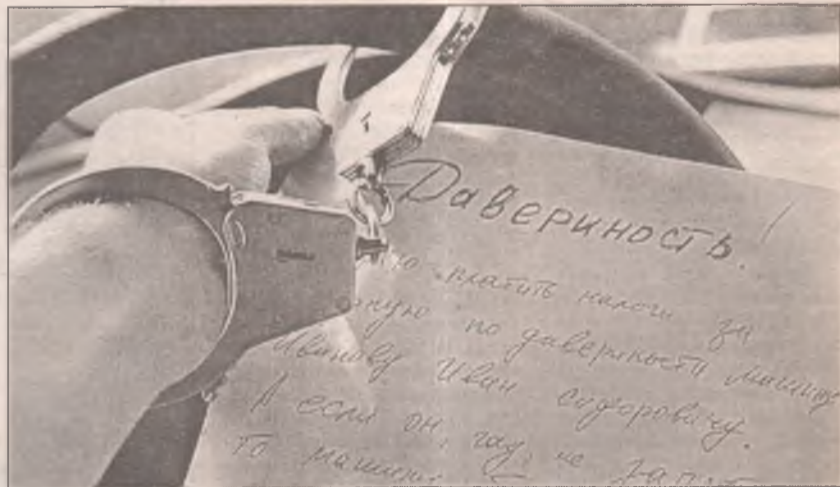 Давериность!
платить налоги за
по даверености машину
Иванову Иван Сидоровичу.
А если он, гад, не
то машину